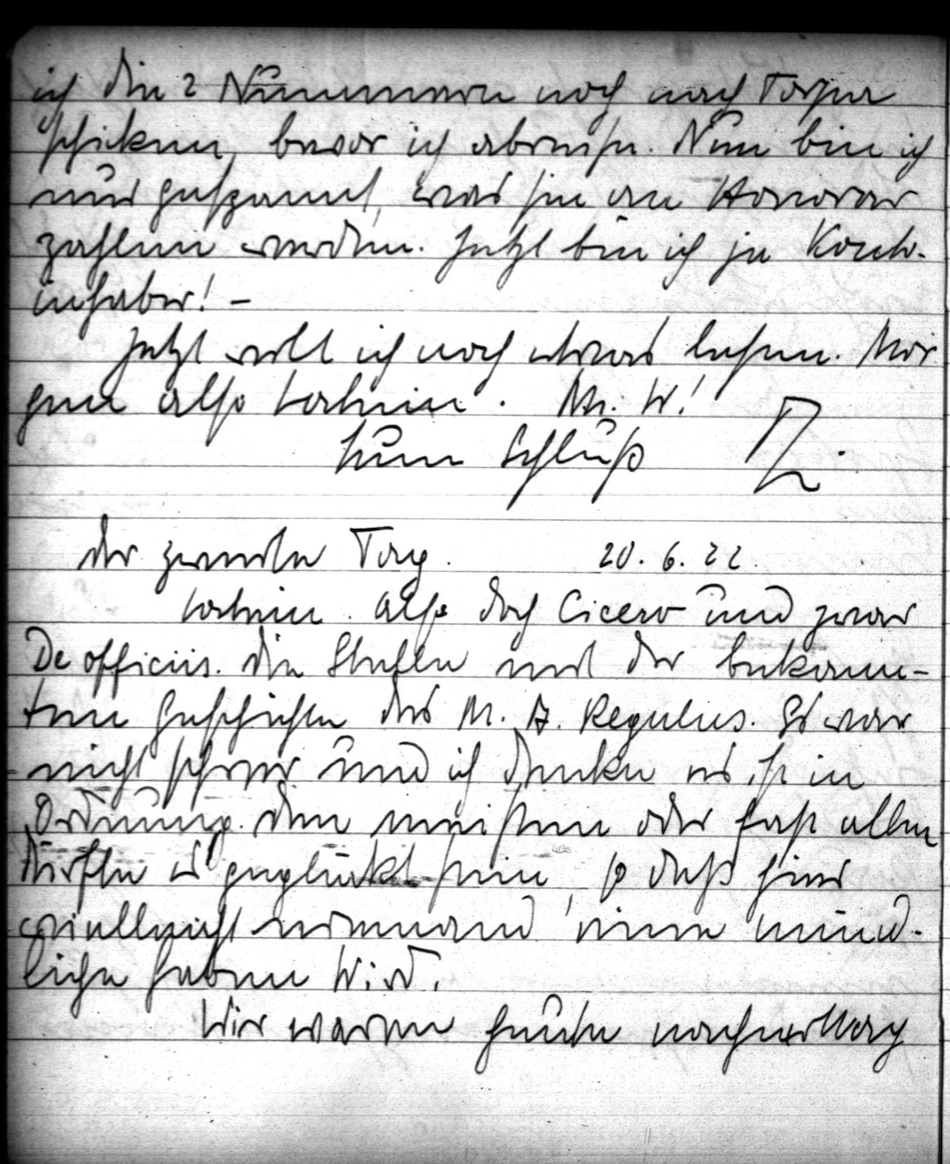 ich die 2 Nummern noch nach
schicken, bevor ich abreise. Nun bin ich
nur gespannt, was sie an Honorar
zahlen werden. Jetzt bin ich ja Konto-
inhaber! –
Jetzt will ich noch etwas lesen. Mor
gen also Latein.
zum Schluß
Der zweite Tag. 20. 6. 22.
Latein. Also doch Cicero und zwar
De officiis. Die Stelle mit der bekann-
ten Geschichte des M. A. Regulus. Es war
nicht schwer und ich denke es ist in
Ordnung. Den meisten oder fast allen
dürfte es geglückt sein, so daß hier
vielleicht niemand eine münd-
liche haben wird.
Wir waren heute nachmittag